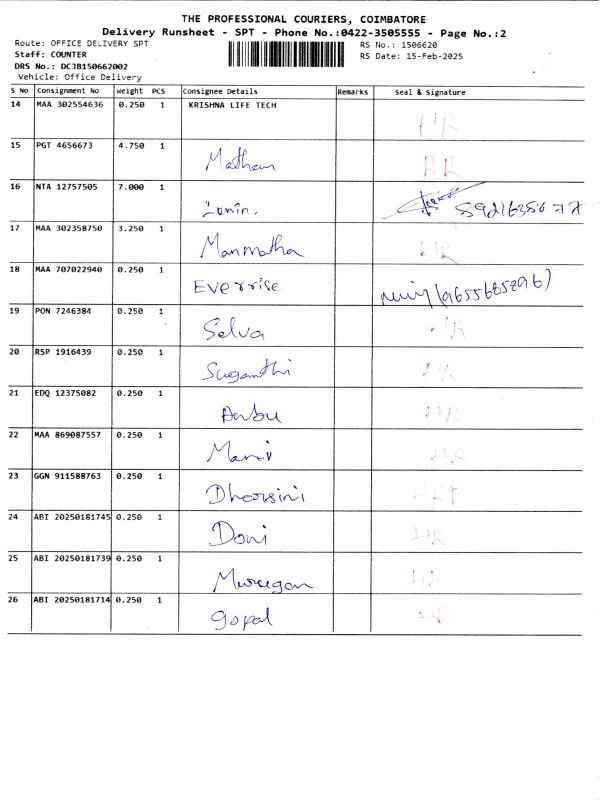 THE PROFESSIONAL COURIERS, COIMBATORE
Delivery Runsheet - SPT - Phone No.:0422-3505555 - Page No.:2
Route: OFFICE DELIVERY SPT
RS No.: 1506620
Staff: COUNTER
RS Date: 15-Feb-2025
DRS No.: DCJB150662002
Vehicle: Office Delivery
S No Consignment No weight PCS Consignee Details Remarks Seal & Signature
14 MAA 302554636 0.250 1 KRISHNA LIFE TECH HR
15 PGT 4656673 4.750 1 Mathan
16 NTA 12757505 7.000 1
17 MAA 302358750 3.250 1 Manmatha HR
18 MAA 707022940 0.250 1 Everrise
19 PON 7246384 0.250 1 Selva HR
20 RSP 1916439 0.250 1 Suganthi HR
21 EDQ 12375082 0.250 1 Anbu HR
22 MAA 869087557 0.250 1 HR
23 GGN 911588763 0.250 1 Dharsini
24 ABI 20250181745 0.250 1 Doni HR
25 ABI 20250181739 0.250 1 Murugan HR
26 ABI 20250181714 0.250 1 gopal HR